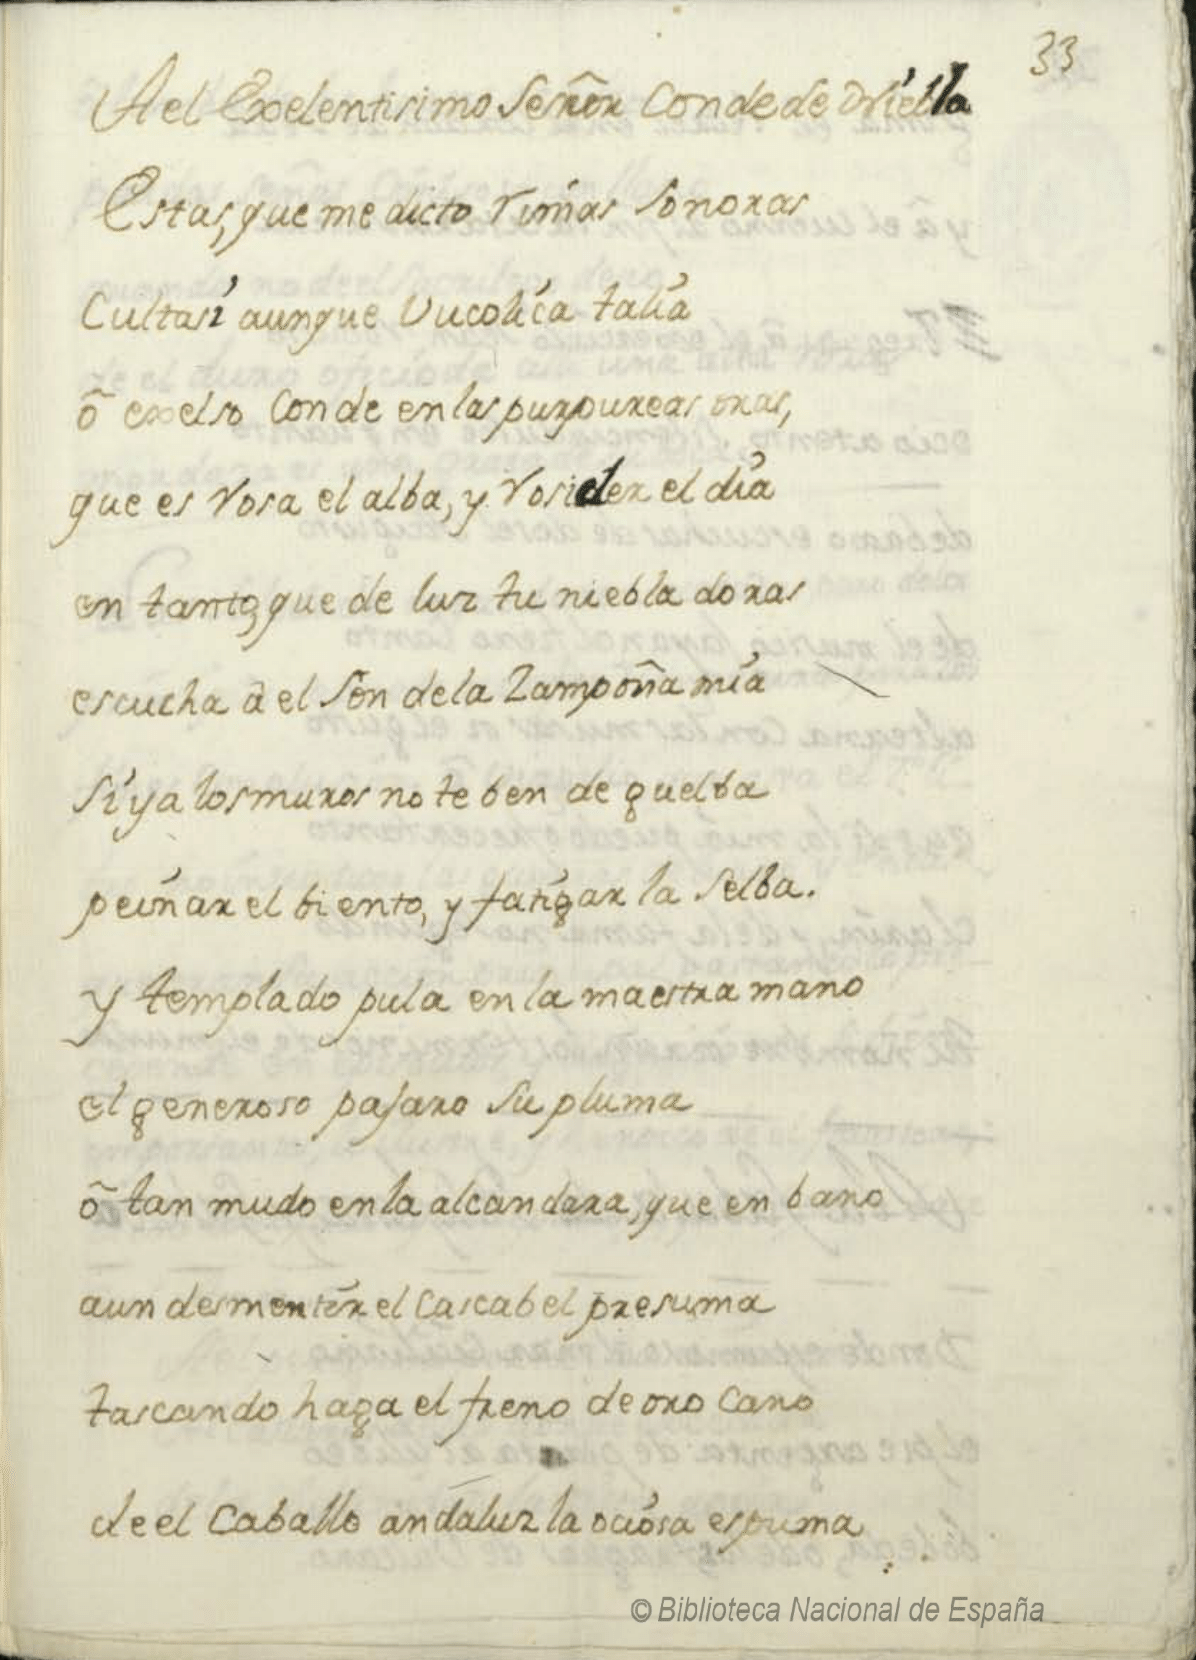 33
A el Exelentisimo Señor Conde de Niebla
Estas, que me dicto rimas sonoras
Cultasi aunque Vucolica talia
õ exelso Conde en las purpureas oras,
que es rosa el alba, y rosicler el dia
en tanto, que de luz tu niebla doras
escucha ã el son dela Zampoña mia
si ya los muros no te ben de guelba
peinar el biento, y fatigar la selba.
y templado pula en la maestra mano
el generoso pajaro su pluma
õ tan mudo en la alcandara, que en bano
aun desmentir el Cascabel presuma
tascando haga el freno de oro Cano
de el Caballo andaluz la ociosa espuma
© Biblioteca Nacional de España